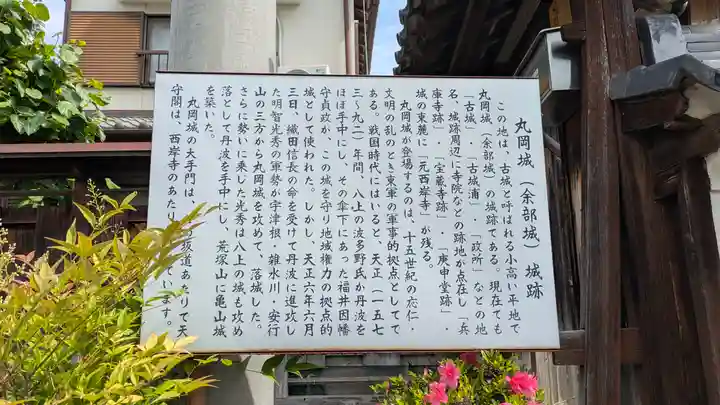 丸岡城(余部城)城跡
この地は、古城と呼ばれる小高い平地で
丸岡城(余部城)の城跡である。現在でも
「古城」・「古城浦」・「政所」などの地
名、城跡周辺に寺院などの跡地が点在し「兵
庫寺跡」・「宝蔵寺跡」・「庚申堂跡」・
城の東麓に「元西岸寺」が残る。
丸岡城が登場するのは、十五世紀の応仁・
文明の乱のとき東軍の軍事的拠点としてで
ある。戦国時代にはいると、天正(一五七
三〜九二)年間、八上の波多野氏が丹波を
ほぼ手中にし、その傘下にあった福井因幡
守貞政が、この城を守り地域権力の拠点的
城として使われた。しかし、天正六年六月
三日、織田信長の命を受けて丹波に進攻し
た明智光秀の軍勢の宇津根、雑水川・安行
山の三方から丸岡城を攻めて、落城した。
さらに勢いに乗った光秀は八上の城も攻め
落として丹波を手中にし、荒塚山に亀山城
を築いた。
丸岡城の大手門は、坂道あたりで天
守閣は、西岸寺のあたりています。